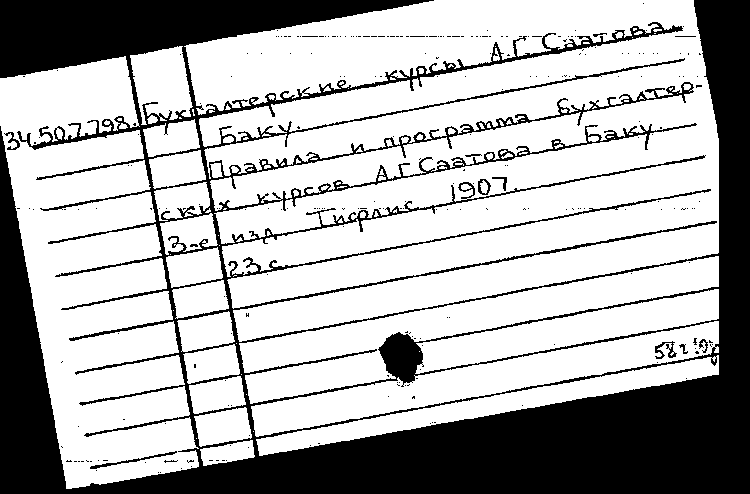 34.50.7.798. Бухгалтерские курсы А.Г. Саатова.
Баку.
Правила и программа бухгалтер-
ских курсов А.Г. Саатова в Баку.
3-е изд. Тифлис, 1907.
23 с.